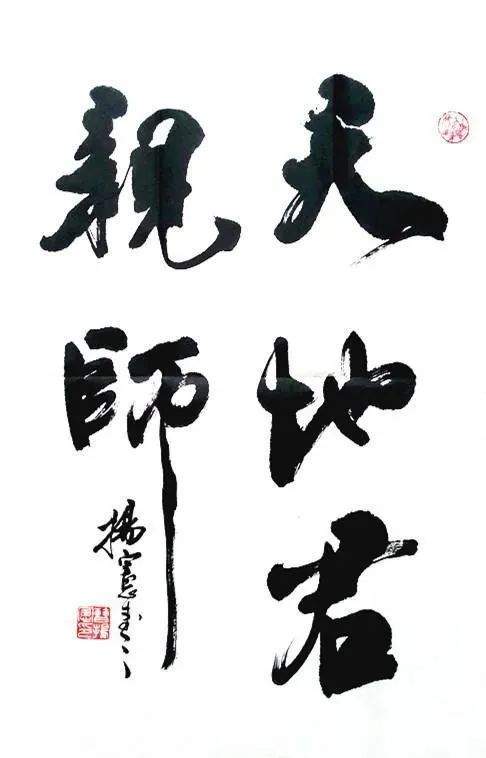 天地君
親師
楊憲書